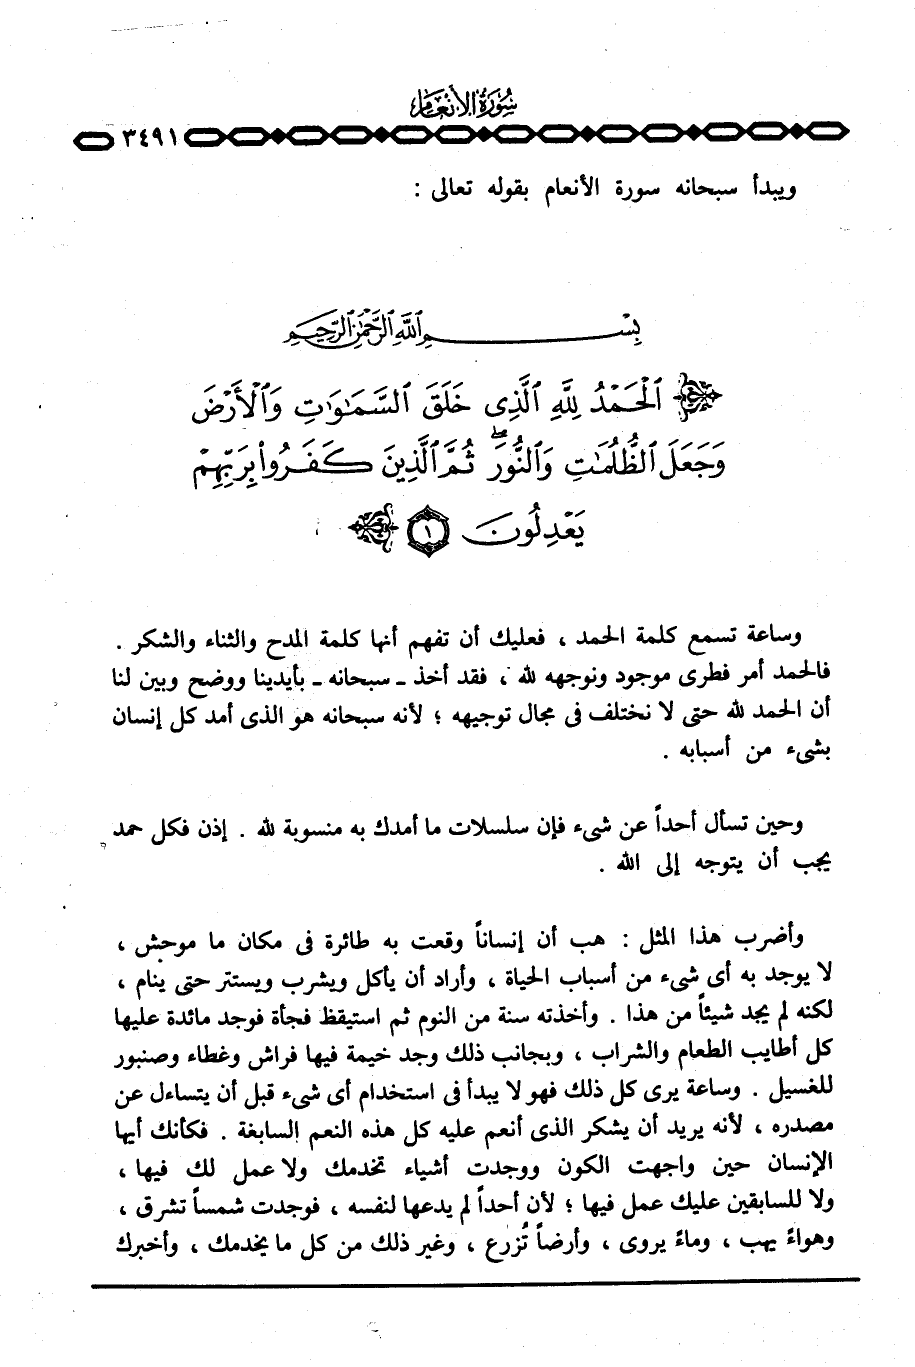 سُورَةُ الأَنْعَام
٣٤٩١
ويبدأ سبحانه سورة الأنعام بقوله تعالى :
بِسْمِ ٱللَّهِ ٱلرَّحْمَٰنِ ٱلرَّحِيمِ
ٱلْحَمْدُ لِلَّهِ ٱلَّذِى خَلَقَ ٱلسَّمَٰوَٰتِ وَٱلْأَرْضَ
وَجَعَلَ ٱلظُّلُمَٰتِ وَٱلنُّورَ ۖ ثُمَّ ٱلَّذِينَ كَفَرُوا۟ بِرَبِّهِمْ
يَعْدِلُونَ ١
وساعة تسمع كلمة الحمد ، فعليك أن تفهم أنها كلمة المدح والثناء والشكر .
فالحمد أمر فطرى موجود ونوجهه لله ، فقد أخذ ـ سبحانه ـ بأيدينا ووضح وبين لنا
أن الحمد لله حتى لا نختلف فى مجال توجيهه ؛ لأنه سبحانه هو الذى أمد كل إنسان
بشىء من أسبابه .
وحين تسأل أحداً عن شىء فإن سلسلات ما أمدك به منسوبة لله . إذن فكل حمد
يجب أن يتوجه إلى الله .
وأضرب هذا المثل : هب أن إنساناً وقعت به طائرة فى مكان ما موحش ،
لا يوجد به أى شىء من أسباب الحياة ، وأراد أن يأكل ويشرب ويستتر حتى ينام ،
لكنه لم يجد شيئاً من هذا . وأخذته سنة من النوم ثم استيقظ فجأة فوجد مائدة عليها
كل أطايب الطعام والشراب ، وبجانب ذلك وجد خيمة فيها فراش وغطاء وصنبور
للغسيل . وساعة يرى كل ذلك فهو لا يبدأ فى استخدام أى شىء قبل أن يتساءل عن
مصدره ، لأنه يريد أن يشكر الذى أنعم عليه كل هذه النعم السابغة . فكأنك أيها
الإنسان حين واجهت الكون ووجدت أشياء تخدمك ولا عمل لك فيها ،
ولا للسابقين عليك عمل فيها ؛ لأن أحداً لم يدعها لنفسه ، فوجدت شمساً تشرق ،
وهواءً يهب ، وماءً يروى ، وأرضاً تُزرع ، وغير ذلك من كل ما يخدمك ، وأخبرك